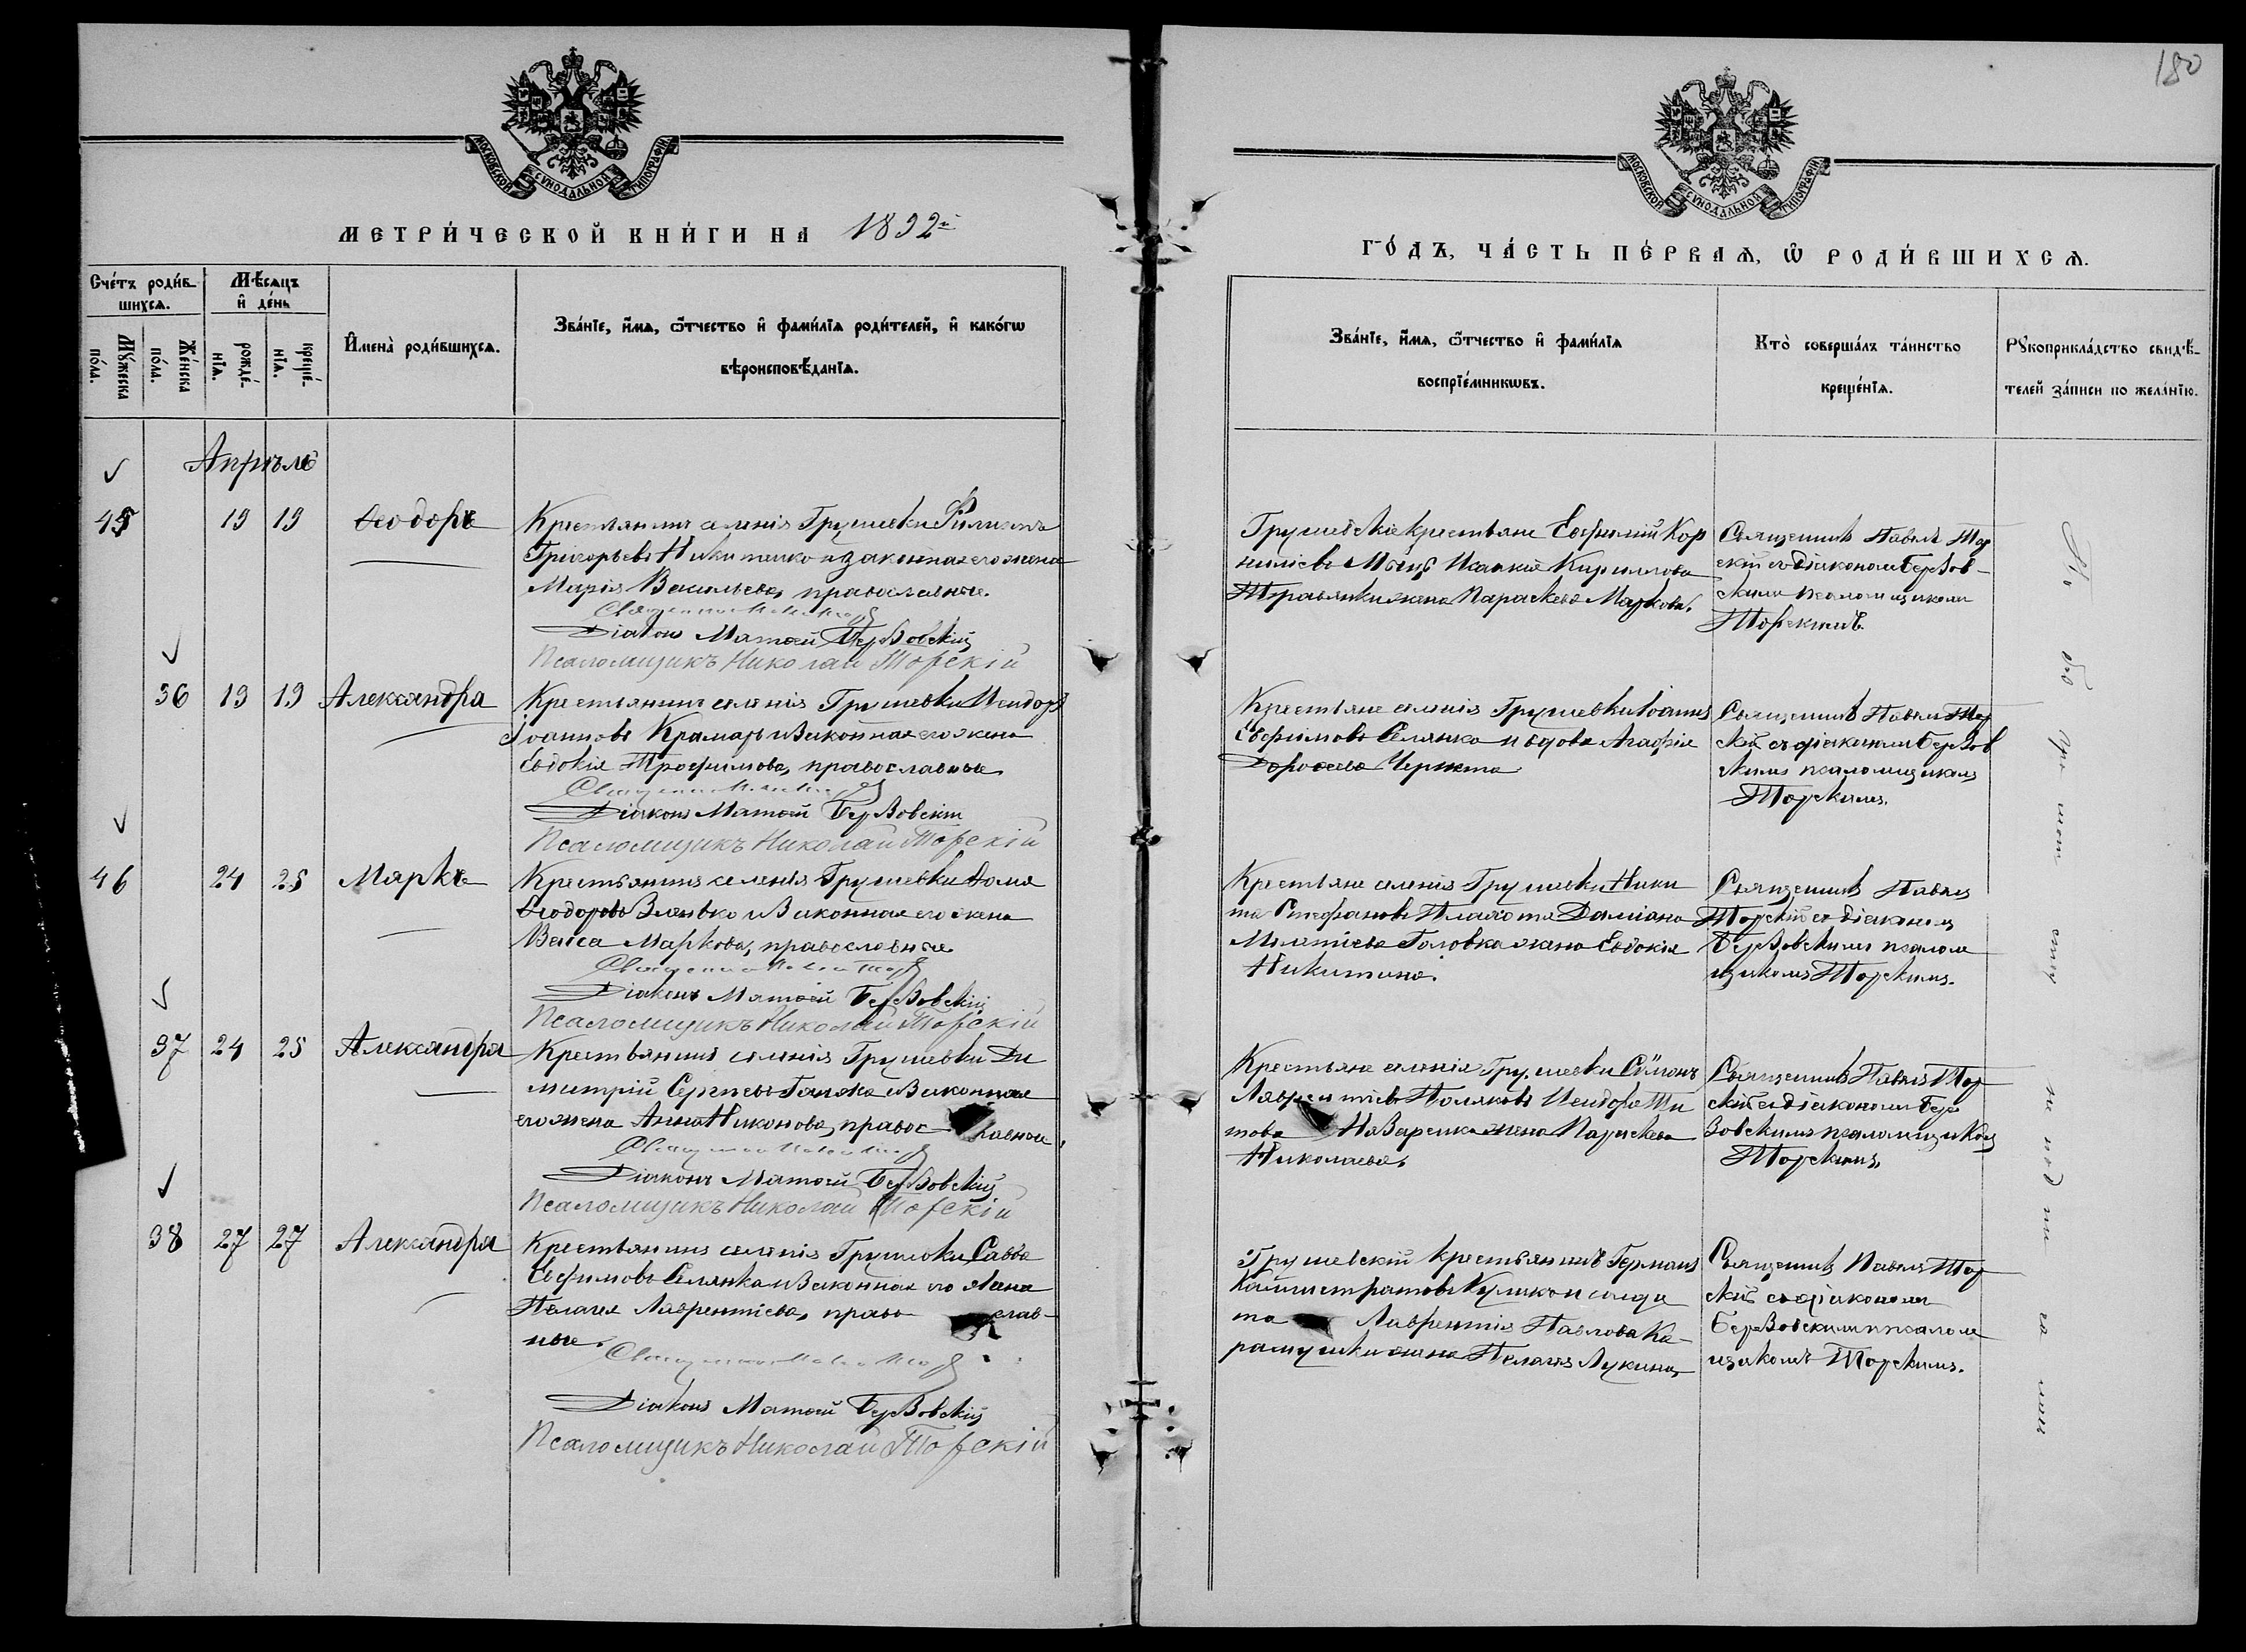 180
МОСКОВСКОЙ СѴНОДАЛЬНОЙ ТИПОГРАФІИ
МЕТРИ́ЧЕСКОЙ КНИ́ГИ НА 1892й
Сче́тъ роди́в-
шихсѧ.
Мѣ́сѧцъ
и҆ де́нь
Мꙋ́жеска
по́ла.
Же́нска
по́ла.
рожде́-
нїѧ.
креще́-
нїѧ.
И҆мена̀ роди́вшихсѧ.
Зва́нїе, и҆́мѧ, ѻ҆́тчество и҆ фами́лїѧ роди́телей, и҆ како́гѡ
вѣроисповѣ́данїѧ.
Апрѣль
45 19 19 Ѳеодоръ
Крестьянинъ селенія Грушевки Филиппъ
Григорьевъ Никитенко и законная его жена
Марія Васильева, православные.
Діаконъ Матѳей Березовскій
Псаломщикъ Николай Торскій
36 19 19 Александра
Крестьянинъ селенія Грушевки Исидоръ
Іоанновъ Крамаръ и законная его жена
Евдокія Трофимова, православные
Діаконъ Матѳей Березовскій
Псаломщикъ Николай Торскій
46 24 25 Маркъ
Крестьянинъ селенія Грушевки Ѳома
Ѳеодоровъ и законная его жена
Васса Маркова, православные
Діаконъ Матѳей Березовскій
Псаломщикъ Николай Торскій
37 24 25 Александра
Крестьянинъ селенія Грушевки Ди
митрій Сергѣевъ и законная
его жена Анна Никонова, правос лавные
Діаконъ Матѳей Березовскій
Псаломщикъ Николай Торскій
38 27 27 Александра
Крестьянинъ селенія Грушевки Савва
Ефимовъ Селянко и законная его жена
Пелагія Лаврентіева, право слав-
ные.
Діаконъ Матѳей Березовскій
Псаломщикъ Николай Торскій
МОСКОВСКОЙ СѴНОДАЛЬНОЙ ТИПОГРАФІИ
ГО́ДЪ, ЧА́СТЬ ПЕ́РВАѦ, Ѡ҆ РОДИ́ВШИХСѦ.
Зва́нїе, и҆́мѧ, ѻ҆́тчество и҆ фами́лїѧ
воспрїе́мникѡвъ.
Кто̀ соверша́лъ та́инство
креще́нїѧ.
Рꙋкоприкла́дство свидѣ́-
телей за́писи по жела́нїю.
Грушевскіе крестьяне Евфимій Кор
ниліевъ Исаакія Кириллова
жена Параскева Маркова.
Священникъ Павелъ Тор
скій съ діакономъ Березов-
скимъ псаломщикомъ
Торскимъ.
Крестьяне селенія Грушевки Іоаннъ
Евфимовъ Селянко и вдова Агафія
Дороѳеева
Священникъ Павелъ Тор
скій съ діакономъ Березов
скимъ псаломщикомъ
Торскимъ.
Крестьяне селенія Грушевки Ники
та Стефановъ Даміана
Мелетіева Головка жена Евдокія
Никитина.
Священникъ Павелъ
Торскій съ діакономъ
Березовскимъ псалом
щикомъ Торскимъ.
Крестьяне селенія Грушевки Сѷмеонъ
Лаврентіевъ Поляковъ Исидора Ти
това жена Параскева
Николаева.
Священникъ Павелъ Тор
скій съ діакономъ Бере
зовскимъ псаломщикомъ
Торскимъ.
Грушевскій крестьянинъ Германъ
Каллистратовъ Куликъ и солда
та Лаврентія Павлова Ка-
рамушки жена Пелагія Лукина.
Священникъ Павелъ Тор
скій съ діакономъ
Березовскимъ псалом
щикомъ Торскимъ.